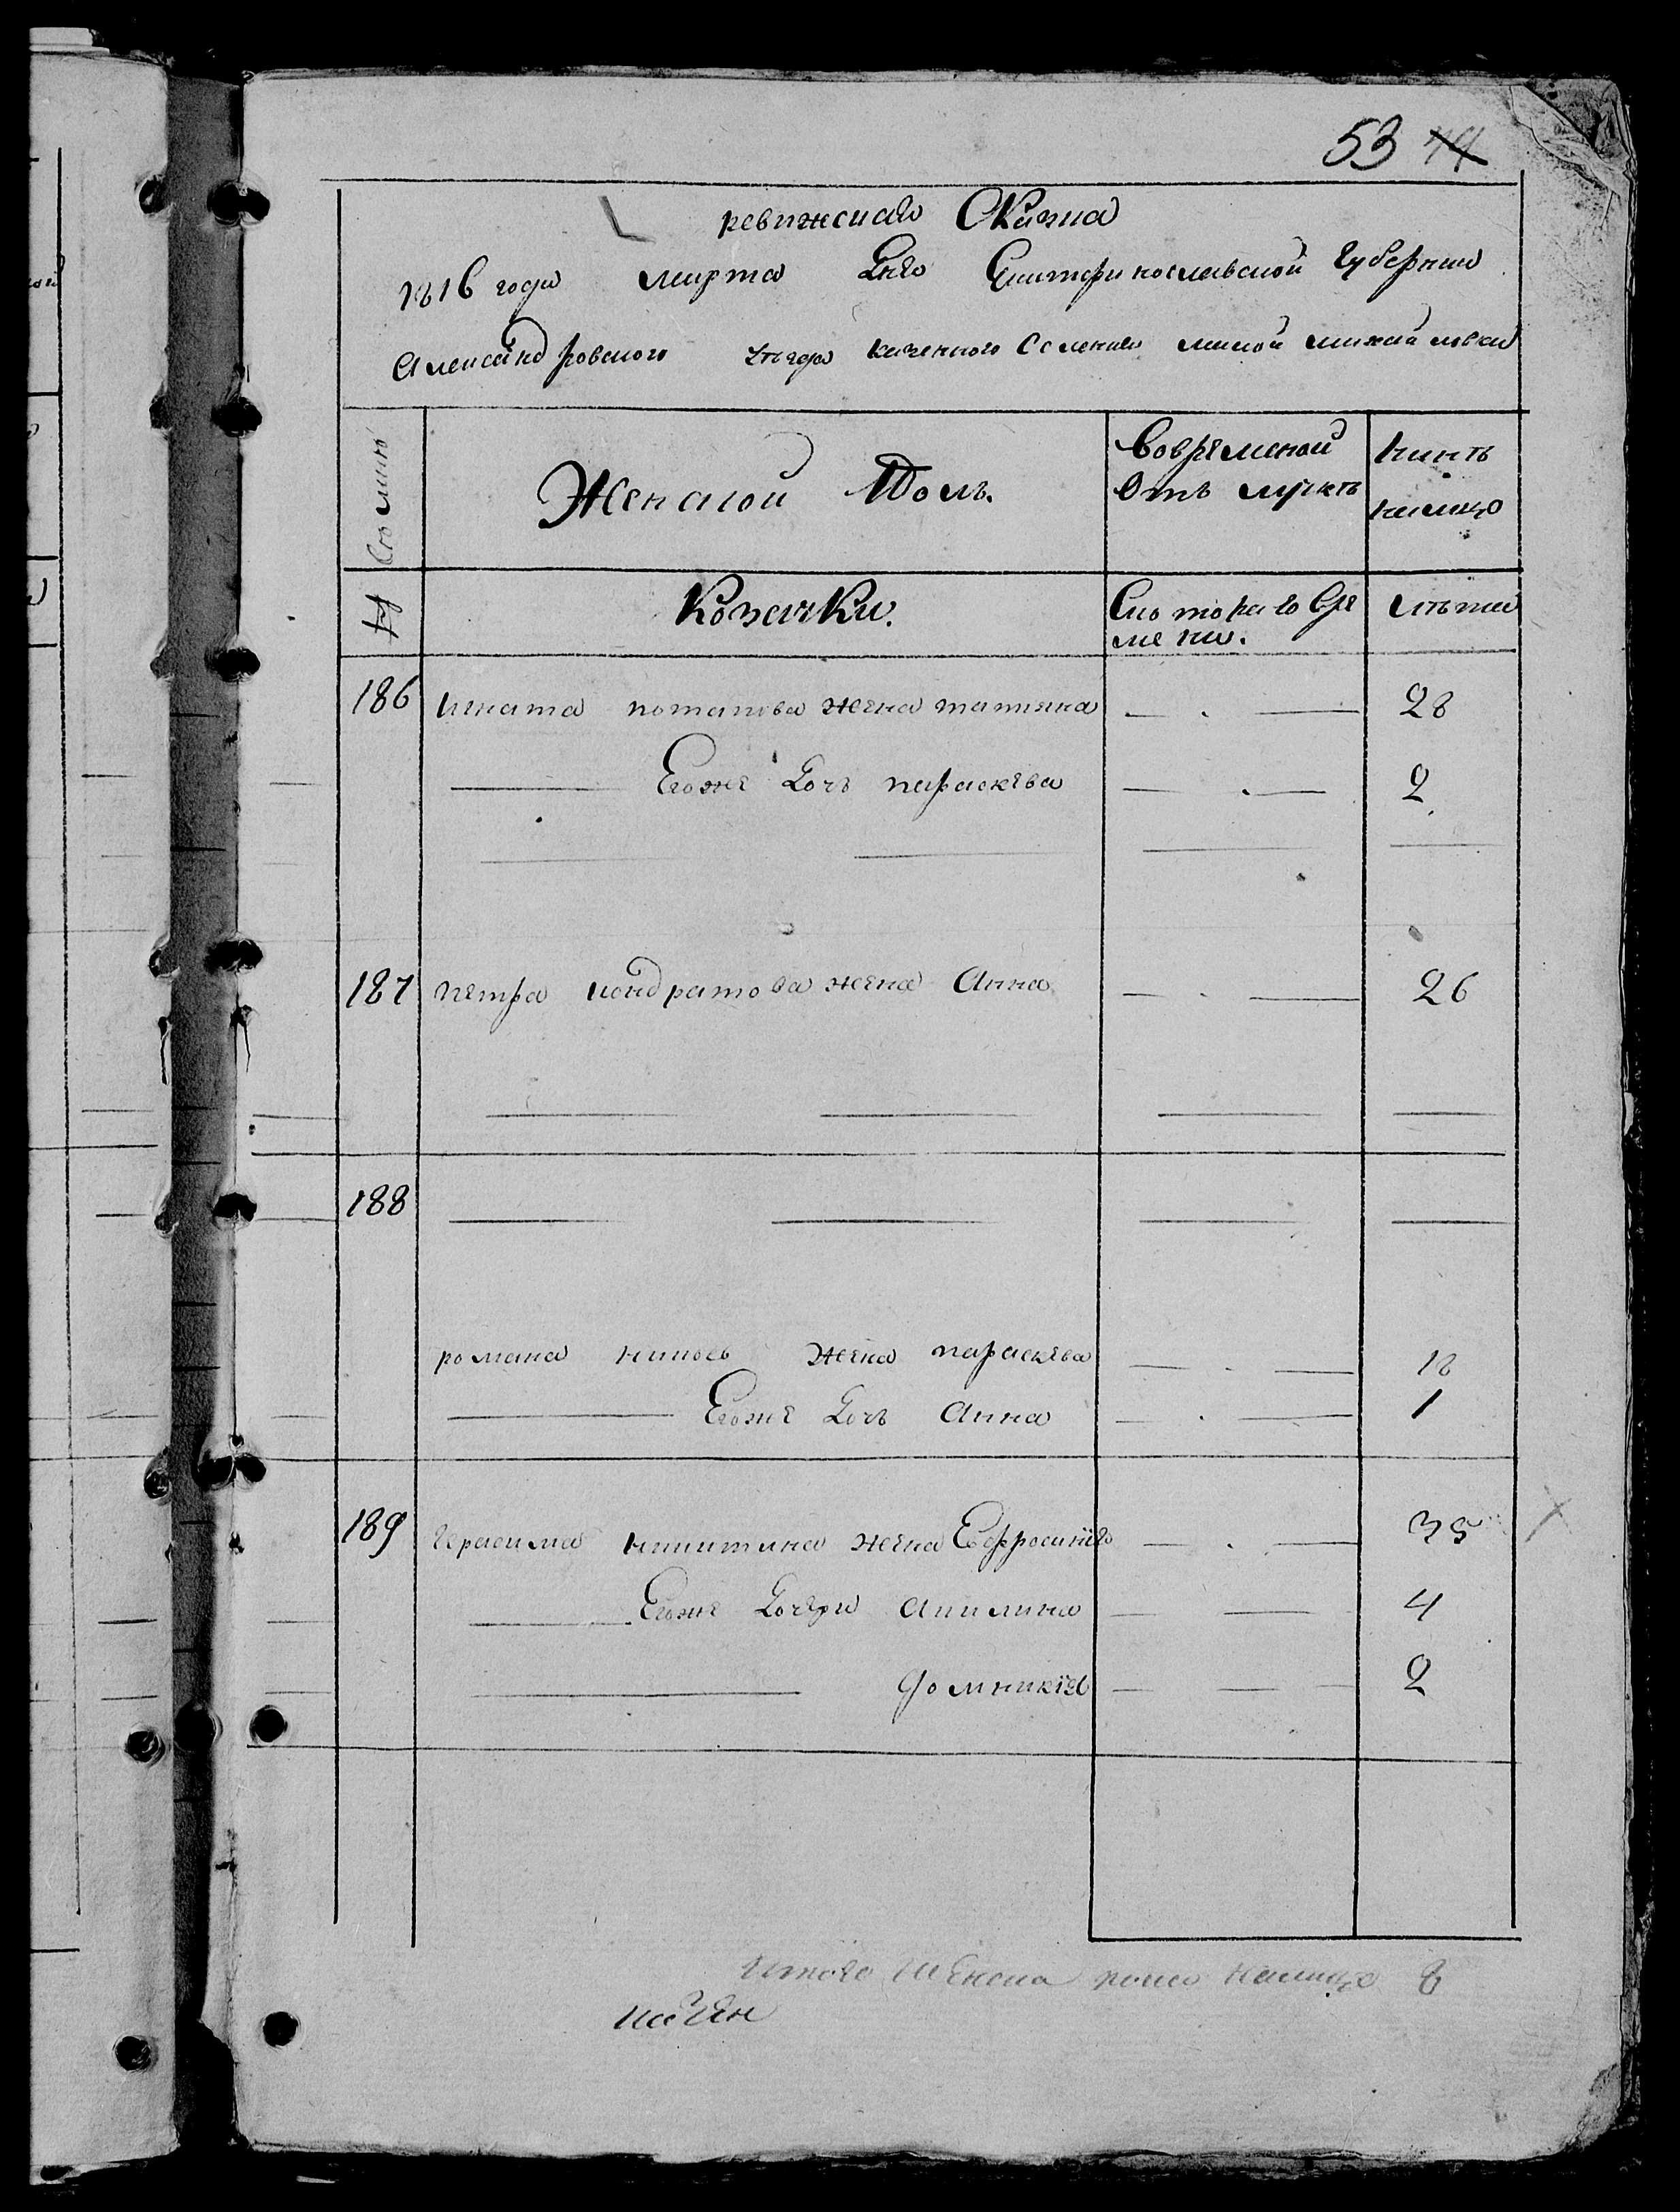 53 44
ревижская Скаска
1816 года марта дня Екатеринославской Губернии
Александровского уезда казенного Селения малой михайловки
Женской Полъ.
Вовременной
Отъ лучкѣ
ныне
налицо
Козачки.
Скоторого Вре
мени.
лѣта
186 Игната потапова жена татияна 28
Егоже Дочь параскева 2
187 петра кондратова жена Анна 26
188
романа жена параскева 18
Егоже Дочь Анна 1
189 Герасима никитина жена Ефросиния 35
Егоже Дочери Акилина 4
Домникия 2
Итого Женска пола налицо 8